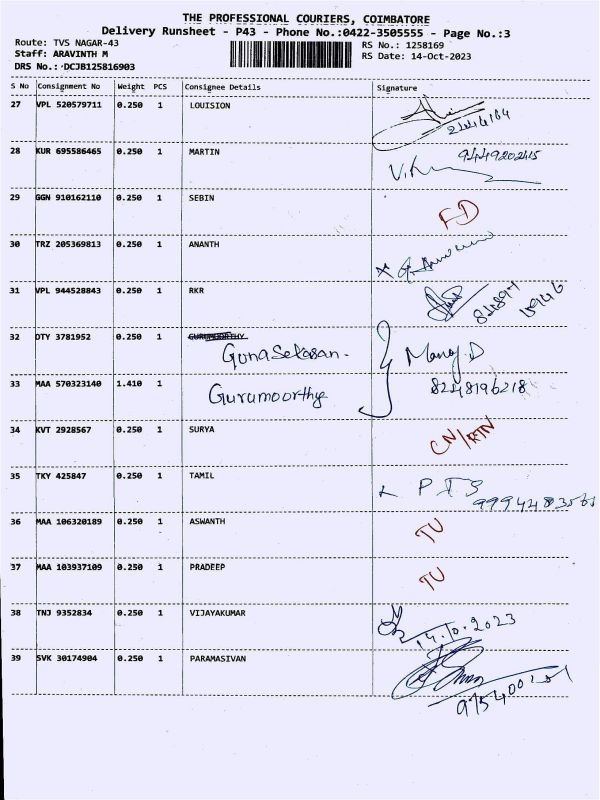 THE PROFESSIONAL COURIERS, COIMBATORE
Delivery Runsheet - P43 - Phone No.:0422-3505555 - Page No.:3
Route: TVS NAGAR-43
RS No.: 1258169
Staff: ARAVINTH M
RS Date: 14-Oct-2023
DRS No.: DCJB125816903
S No Consignment No Weight PCS Consignee Details Signature
27 VPL 520579711 0.250 1 LOUISION
28 KUR 695586465 0.250 1 MARTIN
9449202415
29 GGN 910162110 0.250 1 SEBIN
FD
30 TRZ 205369813 0.250 1 ANANTH
31 VPL 944528843 0.250 1 RKR
32 DTY 3781952 0.250 1 GURUMOORTHY
Gunasekasan. Manoj.D
33 MAA 570323140 1.410 1 Gurumoorthy
8248196218
34 KVT 2928567 0.250 1 SURYA
CN/RTN
35 TKY 425847 0.250 1 TAMIL
PTS
36 MAA 106320189 0.250 1 ASWANTH
TU
37 MAA 103937109 0.250 1 PRADEEP
TU
38 TNJ 9352834 0.250 1 VIJAYAKUMAR
14.10.2023
39 SVK 30174904 0.250 1 PARAMASIVAN